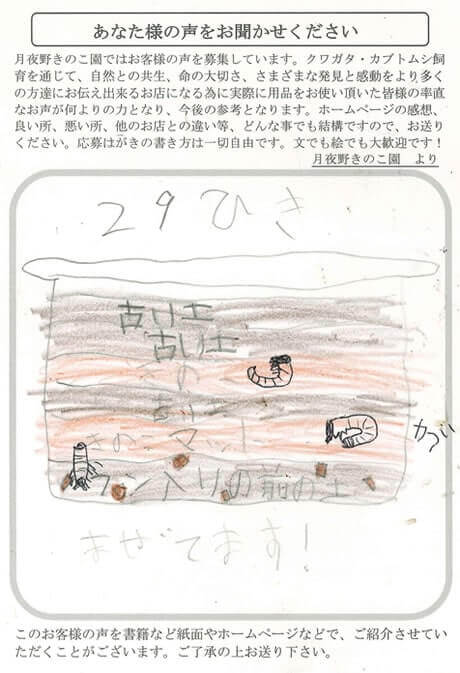 あなた様の声をお聞かせください
月夜野きのこ園ではお客様の声を募集しています。クワガタ・カブトムシ飼
育を通じて、自然との共生、命の大切さ、さまざまな発見と感動をより多く
の方達にお伝え出来るお店になる為に実際に用品をお使い頂いた皆様の率直
なお声が何よりの力となり、今後の参考となります。ホームページの感想、
良い所、悪い所、他のお店との違い等、どんな事でも結構ですので、お送り
ください。応募はがきの書き方は一切自由です。文でも絵でも大歓迎です！
月夜野きのこ園　より
29ひき
古い土
古い土
きのこマット
フン入りの前の土
まぜてます!
このお客様の声を書籍など紙面やホームページなどで、ご紹介させてい
ただくことがございます。ご了承の上お送り下さい。